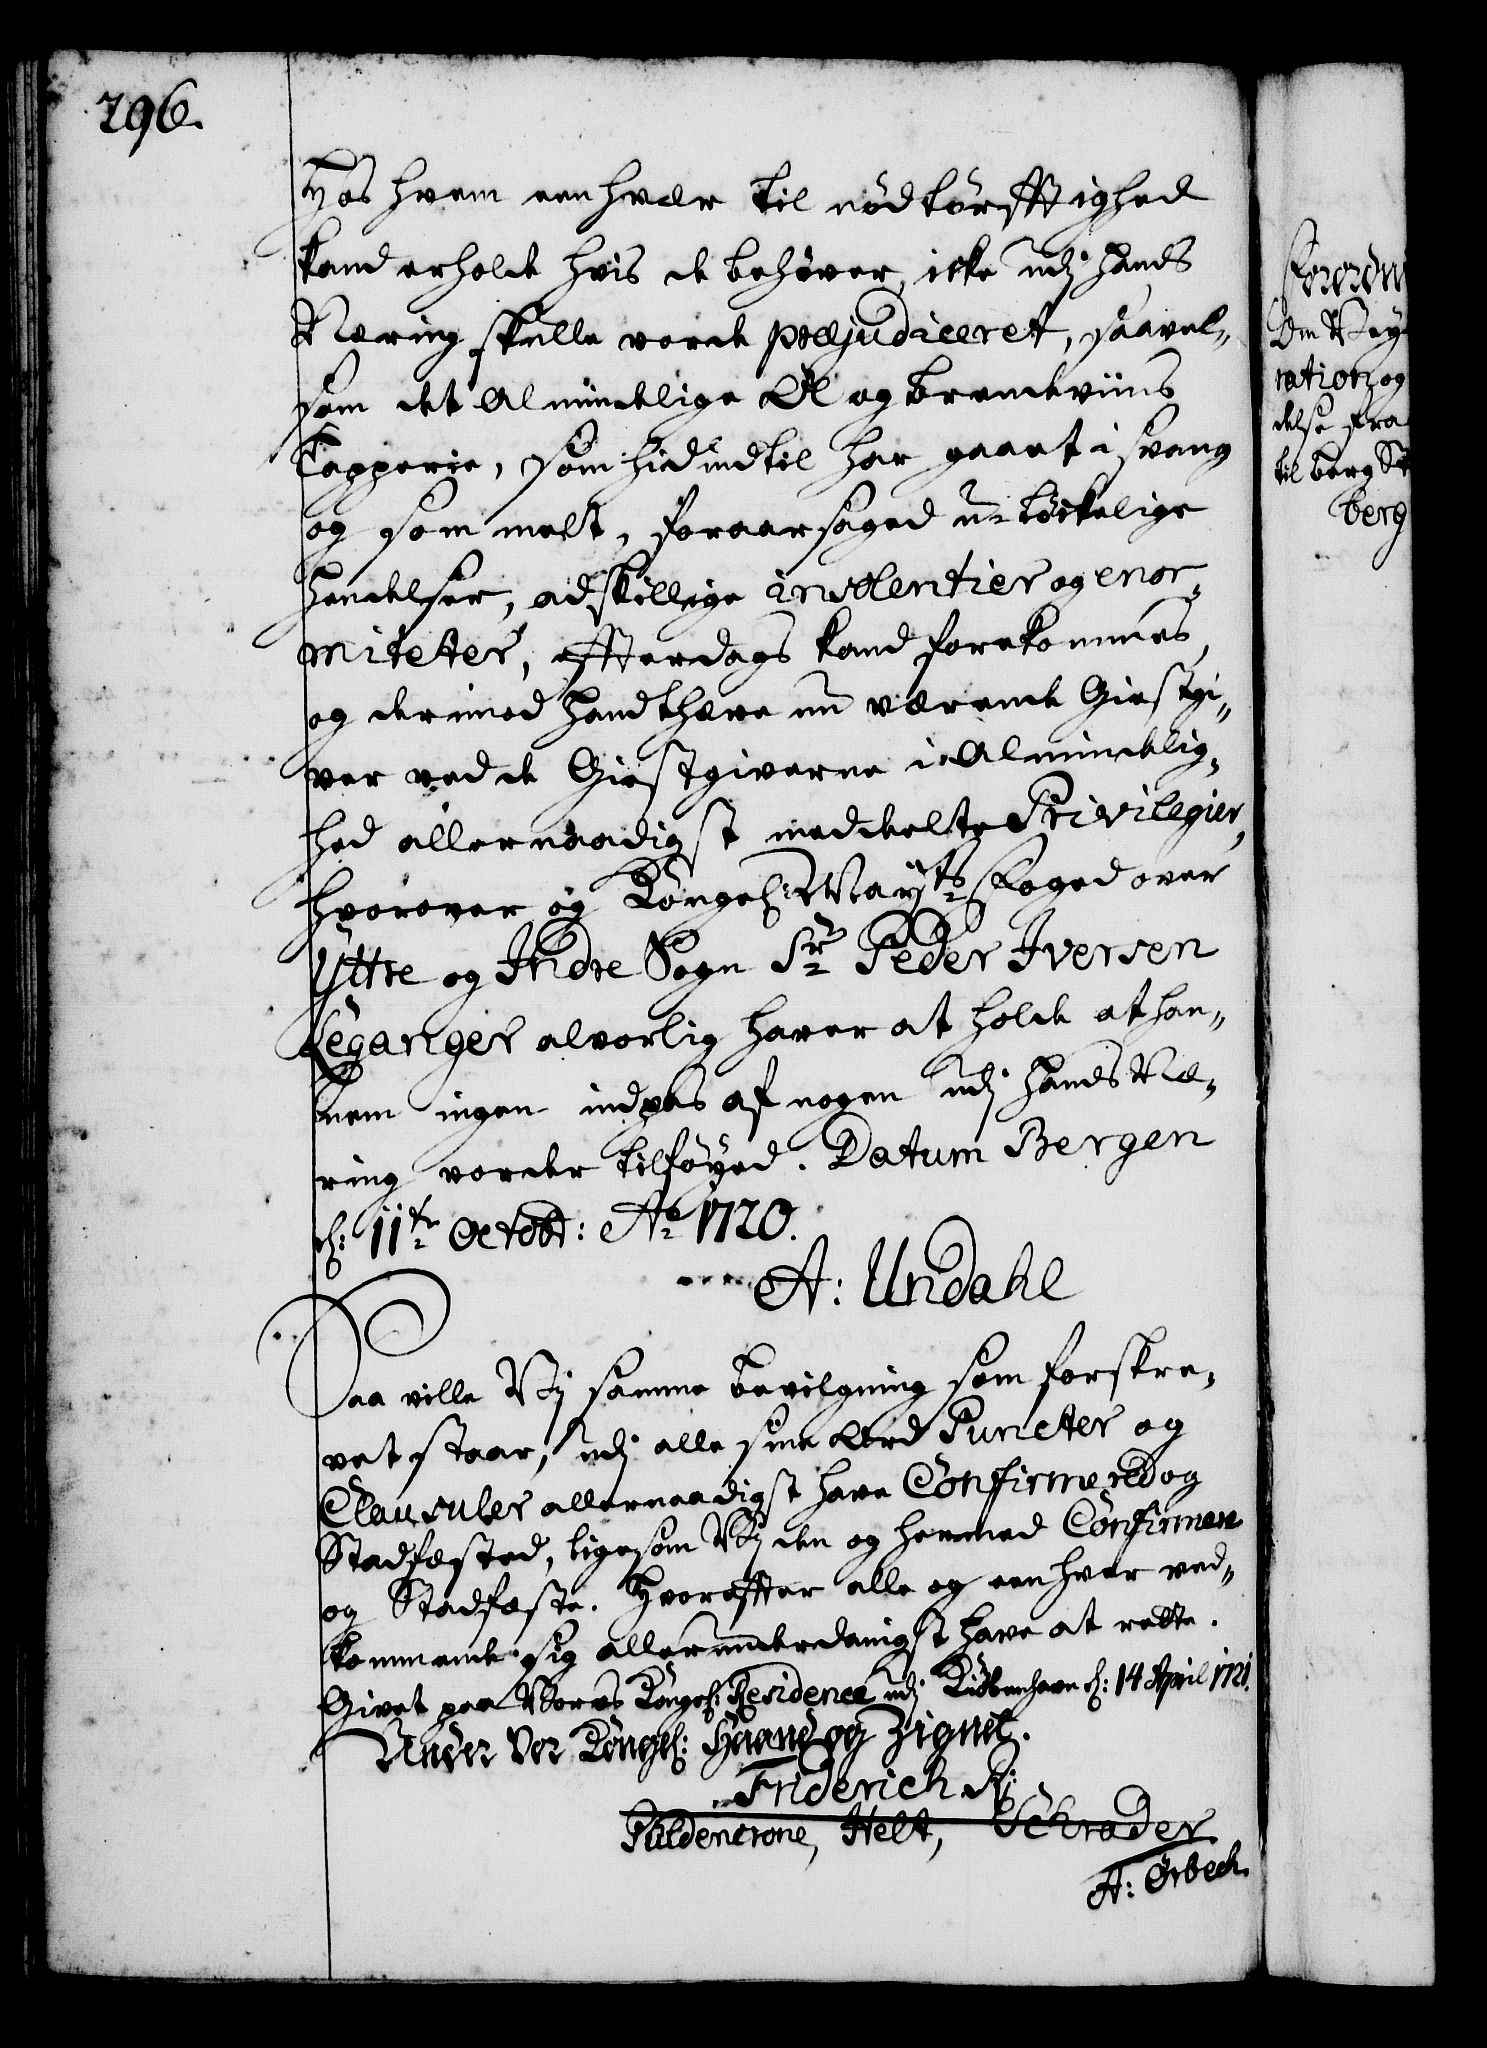 296.
Hos hvem een hver til nødtørfftighed
kand erholde hvis de behøver, icke udj hands
Næring skulle vorde præjudiceret, saavel-
som det Almindelige Øl og brendeviins
Tapperie, som hid indtil har gaaet i svang
og som melt, foraarsaged u-løckelige
Hendelser, adskillige insolentier og enor-
miteter, effterdags kand forekommes,
og derimod handthæve nu værende Giestgi-
ver ved de Giestgiverne i Almindelig-
hed allernaadigst meddeelte Privilegier,
hvorover og Kongel: Mayts Foged over
Yttre og Indre Sogn Sr Peder Iversen
Leganger alvorlig haver at holde at han-
nem ingen indpas af nogen udj hands Næ-
ring vorder tilføyed. Datum Bergen
d: 11te Octobr: Ao 1720.
A: Undahl
Saa ville Vj samme bevilgning som forskre-
vet staar, udj alle sine Ord Puncter og
Clausuler allernaadigst have Confirmered og
Stadfæsted, ligesom Vj den og hermed Confirmere
og Stadfæste. Hvorefter alle og een hver ved-
kommende sig allerunderdanigst have at rette.
Givet paa Vores Kongel: Residence udj Kiøbenhavn d: 14 April 1721.
Under Vor Kongel: Haand og Zignet.
Friderich R:
Güldencrone, Helt, Schrader
A: Ørbech.
Om
ration og
delse fra
til berg
berg